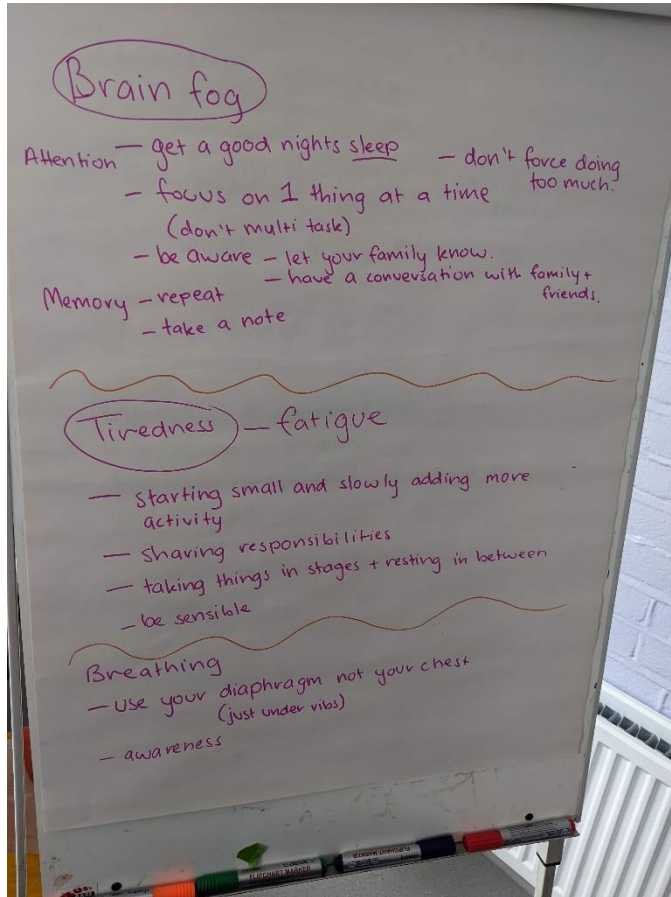 Brain fog
Attention — get a good nights sleep — don't force doing
too much.
— focus on 1 thing at a time
(don't multi task)
— be aware — let your family know.
— have a conversation with family +
friends.
Memory — repeat
— take a note
Tiredness — fatigue
— starting small and slowly adding more
activity
— sharing responsibilities
— taking things in stages + resting in between
— be sensible
Breathing
— use your diaphragm not your chest
(just under ribs)
— awareness
FLIPCHART MARKER
FLIPCHART MARKER